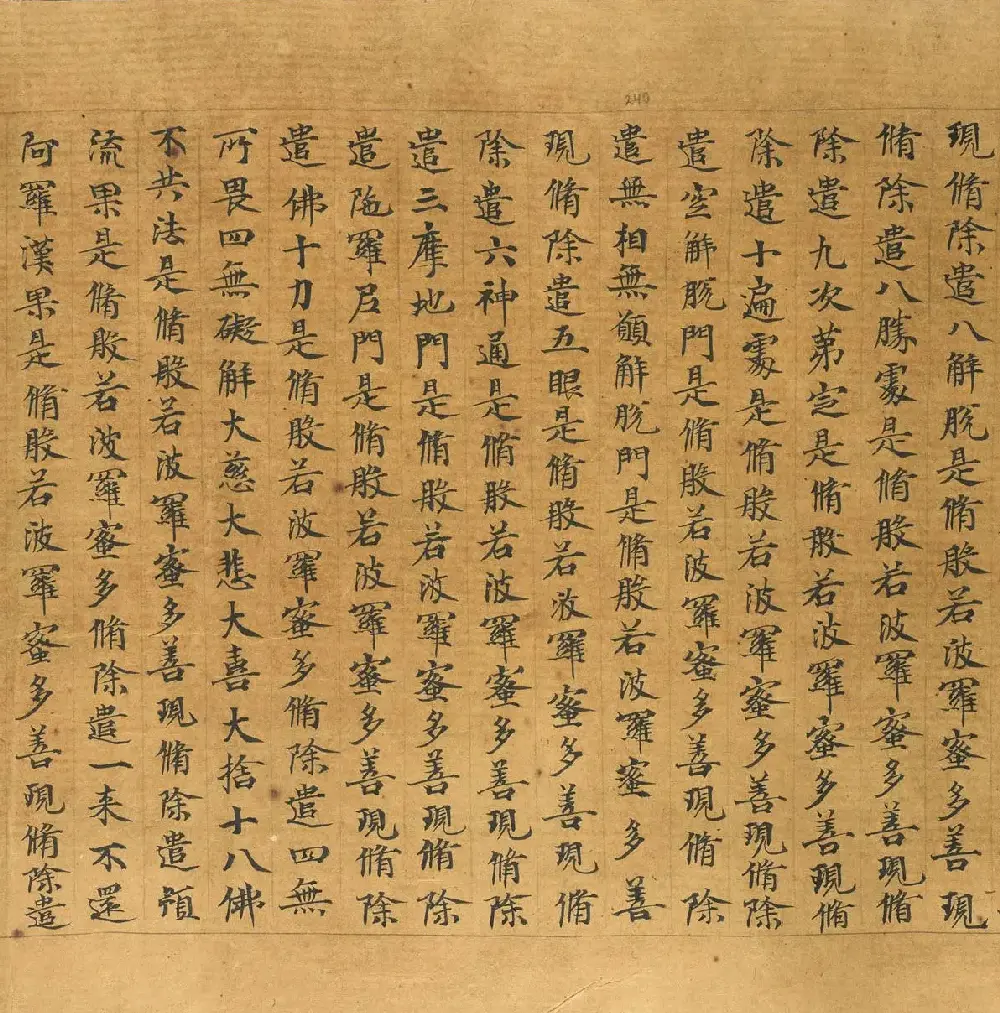 240
現脩除遣八解脫是脩般若波羅蜜多善現
脩除遣八勝處是脩般若波羅蜜多善現脩
除遣九次苐定是脩般若波羅蜜多善現脩
除遣十遍處是脩般若波羅蜜多善現脩除
遣空解脫門是脩般若波羅蜜多善現脩除
遣無相無願解脫門是脩般若波羅蜜多善
現脩除遣五眼是脩般若波羅蜜多善現脩
除遣六神通是脩般若波羅蜜多善現脩除
遣三摩地門是脩般若波羅蜜多善現脩除
遣陁羅尼門是脩般若波羅蜜多善現脩除
遣佛十力是脩般若波羅蜜多脩除遣四無
所畏四無礙解大慈大悲大喜大捨十八佛
不共法是脩般若波羅蜜多善現脩除遣預
流果是脩般若波羅蜜多脩除遣一来不還
阿羅漢果是脩般若波羅蜜多善現脩除遣